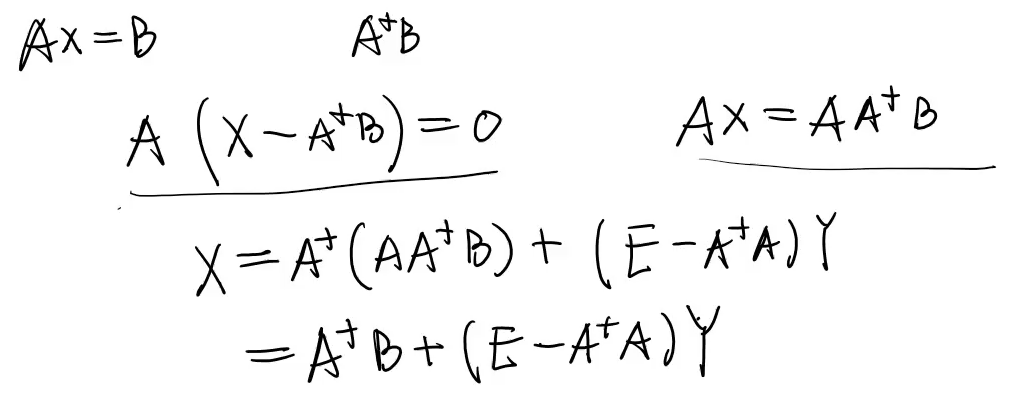 Ax = B A⁺B
A (X - A⁺B) = 0 AX = AA⁺B
X = A⁺(AA⁺B) + (E - A⁺A)Y
= A⁺B + (E - A⁺A)Y